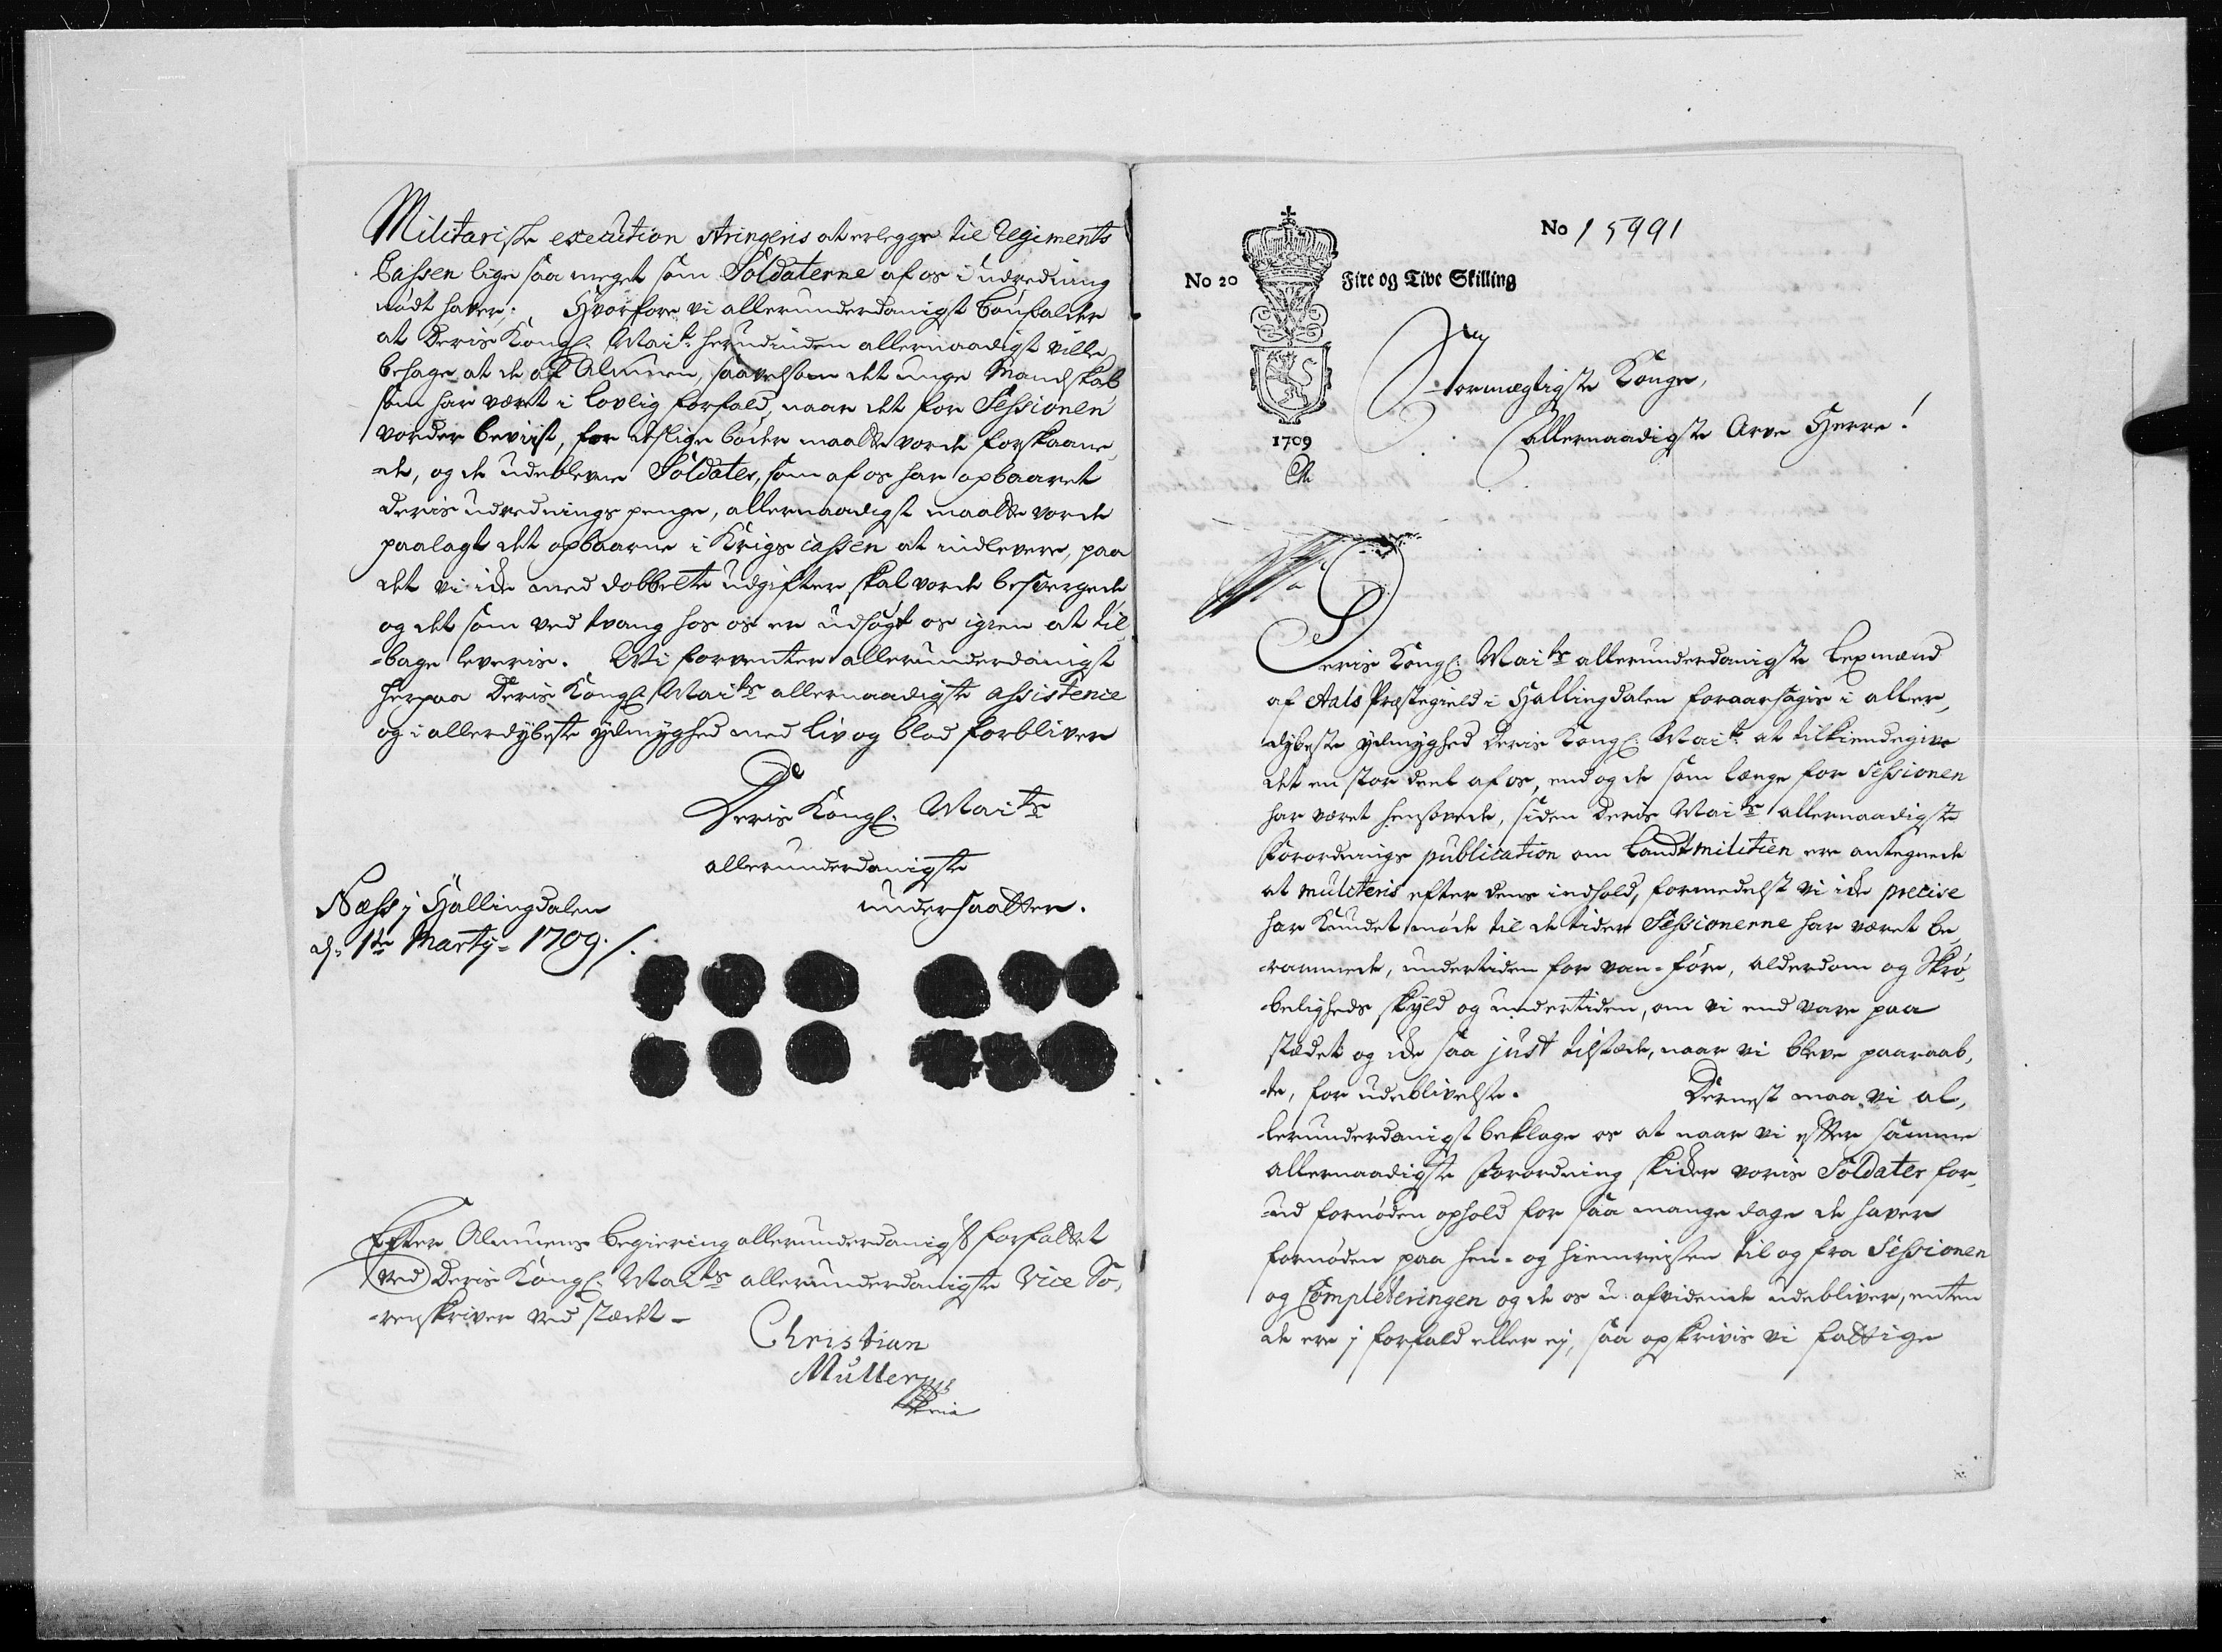 Militariske execution stringeris at erlegge til Regiments
Cassen lige saa meget som Soldaterne af os i udredning
nødt haver; Hvorfore vi allerunderdanigst bønfalder
at Deris Kongl. Mait. herudinden allernaadigst ville
behage at de af Almuen, saavelsom det unge Mandskab
som har været i lovlig forfald, naar det for Sessionen
vorder beviist, for deslige bøder maatte vorde forskaane
-de, og de udeblevne Soldater, som af os har opbaaret
deris udrednings penge, allernaadigst maatte vorde
paalagt det opbaarne i Krigs cassen at indlevere, paa
det vi icke med dobbelte udgifter skal vorde besvergede
og det som ved tvang hos os er udsøgt os igien at til
-bage leveris. Vi forventer allerunderdanigst
herpaa Deris Kongl. Maits allernaadigste assistence
og i allerdybeste ydmyghed med liv og blod forbliver
Deris Kongl. Maits
allerunderdanigste
undersaatter.
Næss j Hallingdalen
d. 1de Martij 1709 ./.
Efter Almuens begiering allerunderdanigst forfattet
ved Deris Kongl. Maits allerunderdanigste Vice So,
-renskriver ved stædet -
Christian
Muller
No 15991
No 20
Fire og Tive Skilling
1709
Stormægtigste Konge,
Allernaadigste Arve Herre!
Deris Kongl. Maits allerunderdanigste Lexmænd
af Aals Præstegield i Hallingdalen foraarsagis i aller,
dybeste ydmyghed Deris Kongl. Mait. at tilkiendegive
det en stor deel af os, end og de som længe for Sessionen
har været hensovede, siden Deris Maits allernaadigste
Forordnings publication om Landtmilitien ere antegnede
at mulcteris efter dens indhold, formedelst vi icke precise
har kundet møde til de tider Sessionerne har været be,
-rammede, undertiden for van-føre, alderdom og Skrø,
-beligheds skyld og undertiden, om vi end vare paa
stædet og icke saa just tilstæde, naar vi bleve paaraab,
-te, for udeblivelse. Dernest maa vi al,
-lerunderdanigst beklage os at naar vi efter samme
allernaadigste Forordning skicker voris Soldater for,
-ud fornøden ophold for saa mange dage de haver
fornøden paa hen- og hiemreisen til og fra Sessionen
og Completeringen og de os u-afvidende udebliver, enten
de ere j forfald eller ej, saa opskrivis vi fattige